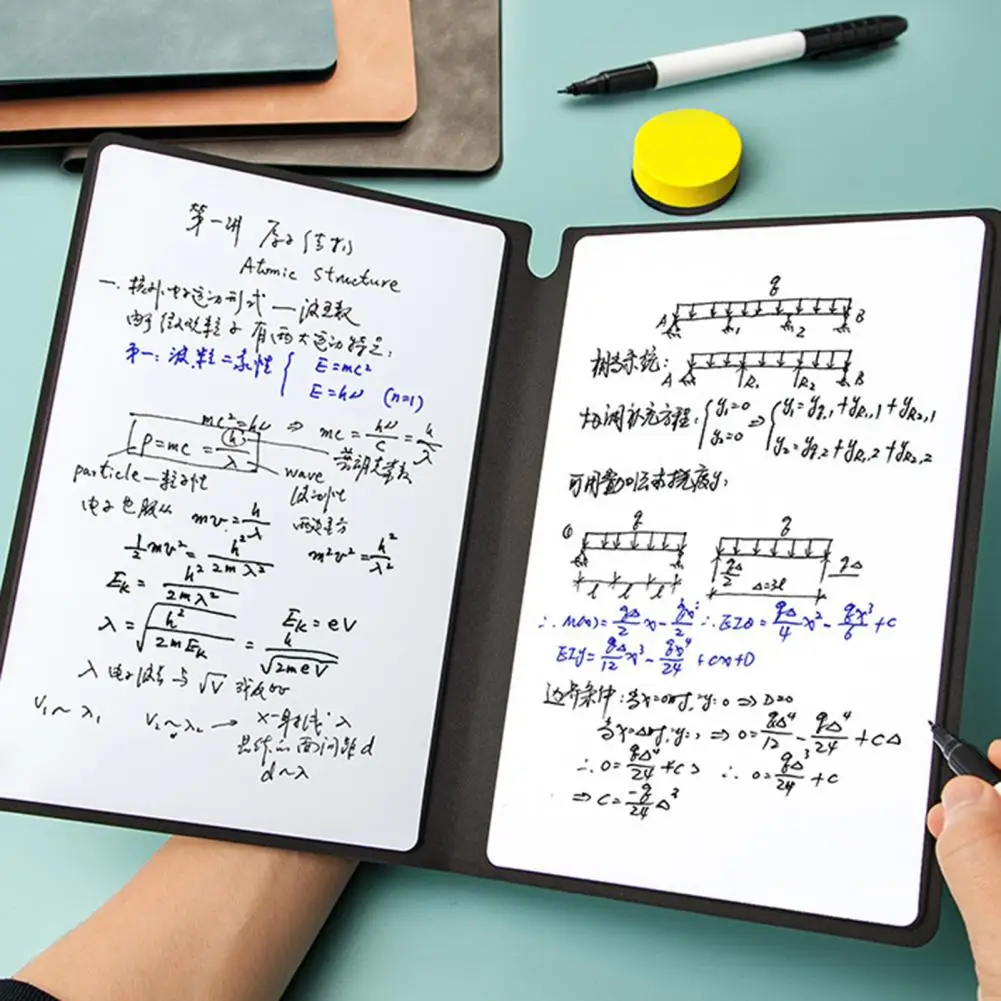 第一讲 原子结构
Atomic structure
一. 核外电子运动形式 — 波函数
由于微观粒子有两大运动特征:
第一: 波粒二象性 { E=mc²
E=hν (n=1)
mc²=hν ⇒ mc = hν/c = h/λ
P=mc = h/λ
普朗克常数
particle—粒子性
wave
波动性
电子也服从 mv = h/λ 两边平方
½mv² = h²/2mλ² m²v² = h²/λ²
E_K = h²/2mλ²
E_K = eV
λ = √(h²/2mE_K) = h/√(2meV)
λ 电子波长与 √V
V₁~λ₁ V₂~λ₂ → X-射线 λ
晶体的面间距 d
d~λ
q
A 1 2 B
相当系统:
A R₁ R₂ B
{ y₁=0 y₂=0 ⇒ { y₁=y_{q,1}+y_{R₁,1}+y_{R₂,1}
y₂=y_{q,2}+y_{R₁,2}+y_{R₂,2}
① q q
l l l qΔ/2 Δ=3l qΔ
∴ M(x)= qΔ/2 x − qx²/2 ∴ EIθ= qΔ/4 x² − qx³/6 +c
EIy= qΔ/12 x³ − qx⁴/24 +cx+D
边界条件: 当x=0时, y=0 ⇒ D=0
当x=Δ时, ⇒ 0= qΔ⁴/12 − qΔ⁴/24 +cΔ
∴ 0= qΔ³/24 +c
⇒ C= −q/24 Δ³